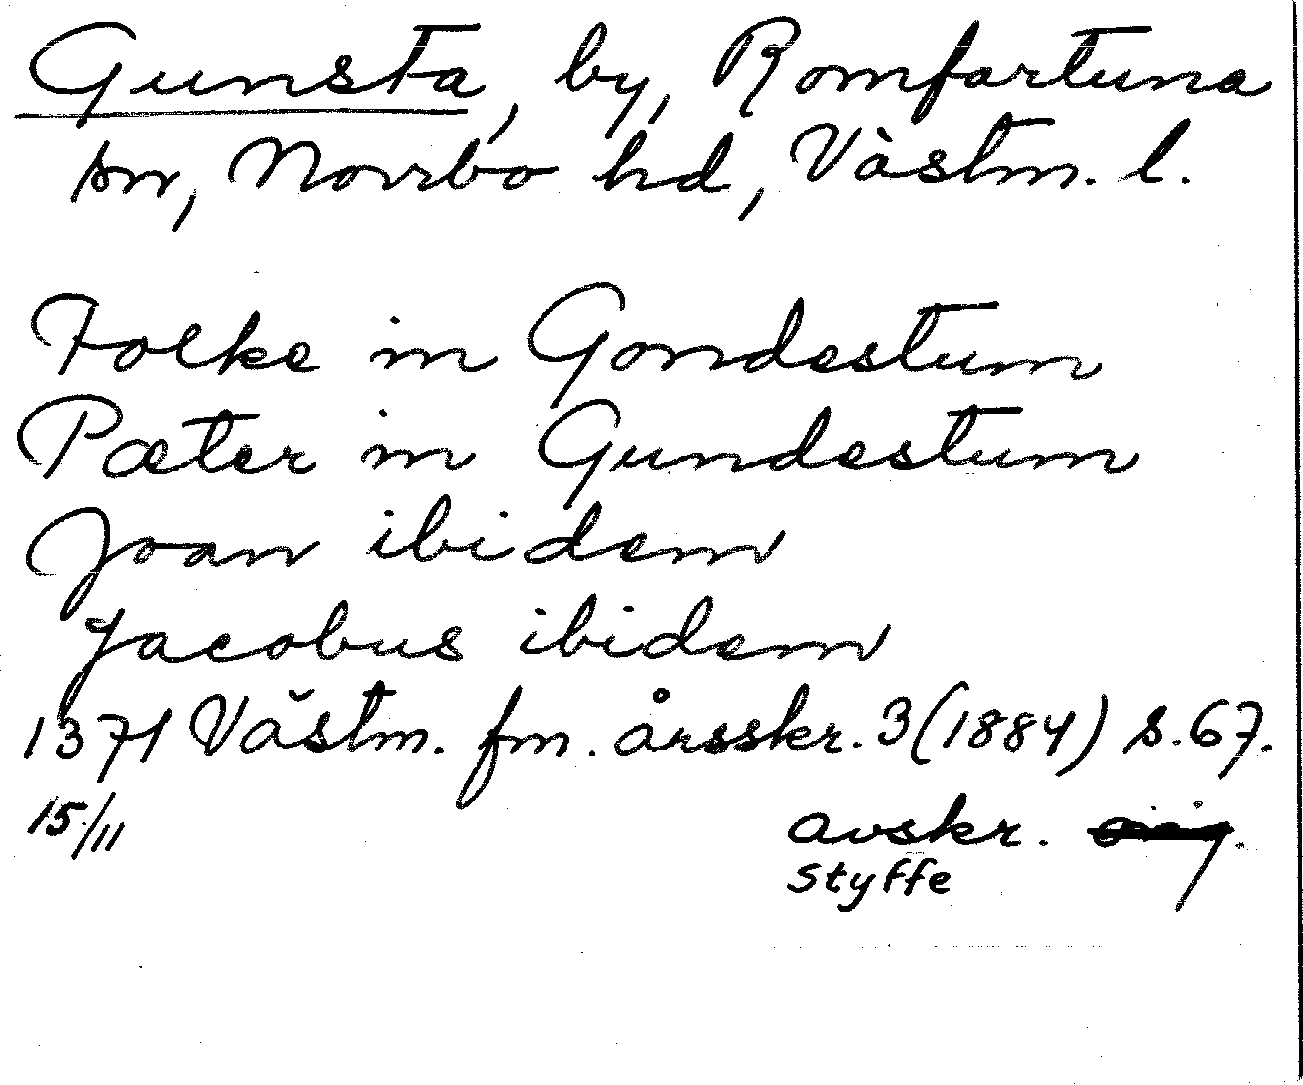 Gunsta, by, Romfartuna
sn, Norrbo hd, Västm. l.
Folke in Gondestum
Pæter in Gundestum
Joan ibidem
Jacobus ibidem
1371 Västm. fm. årsskr. 3 (1884) s. 67.
15/11 avskr.
Styffe